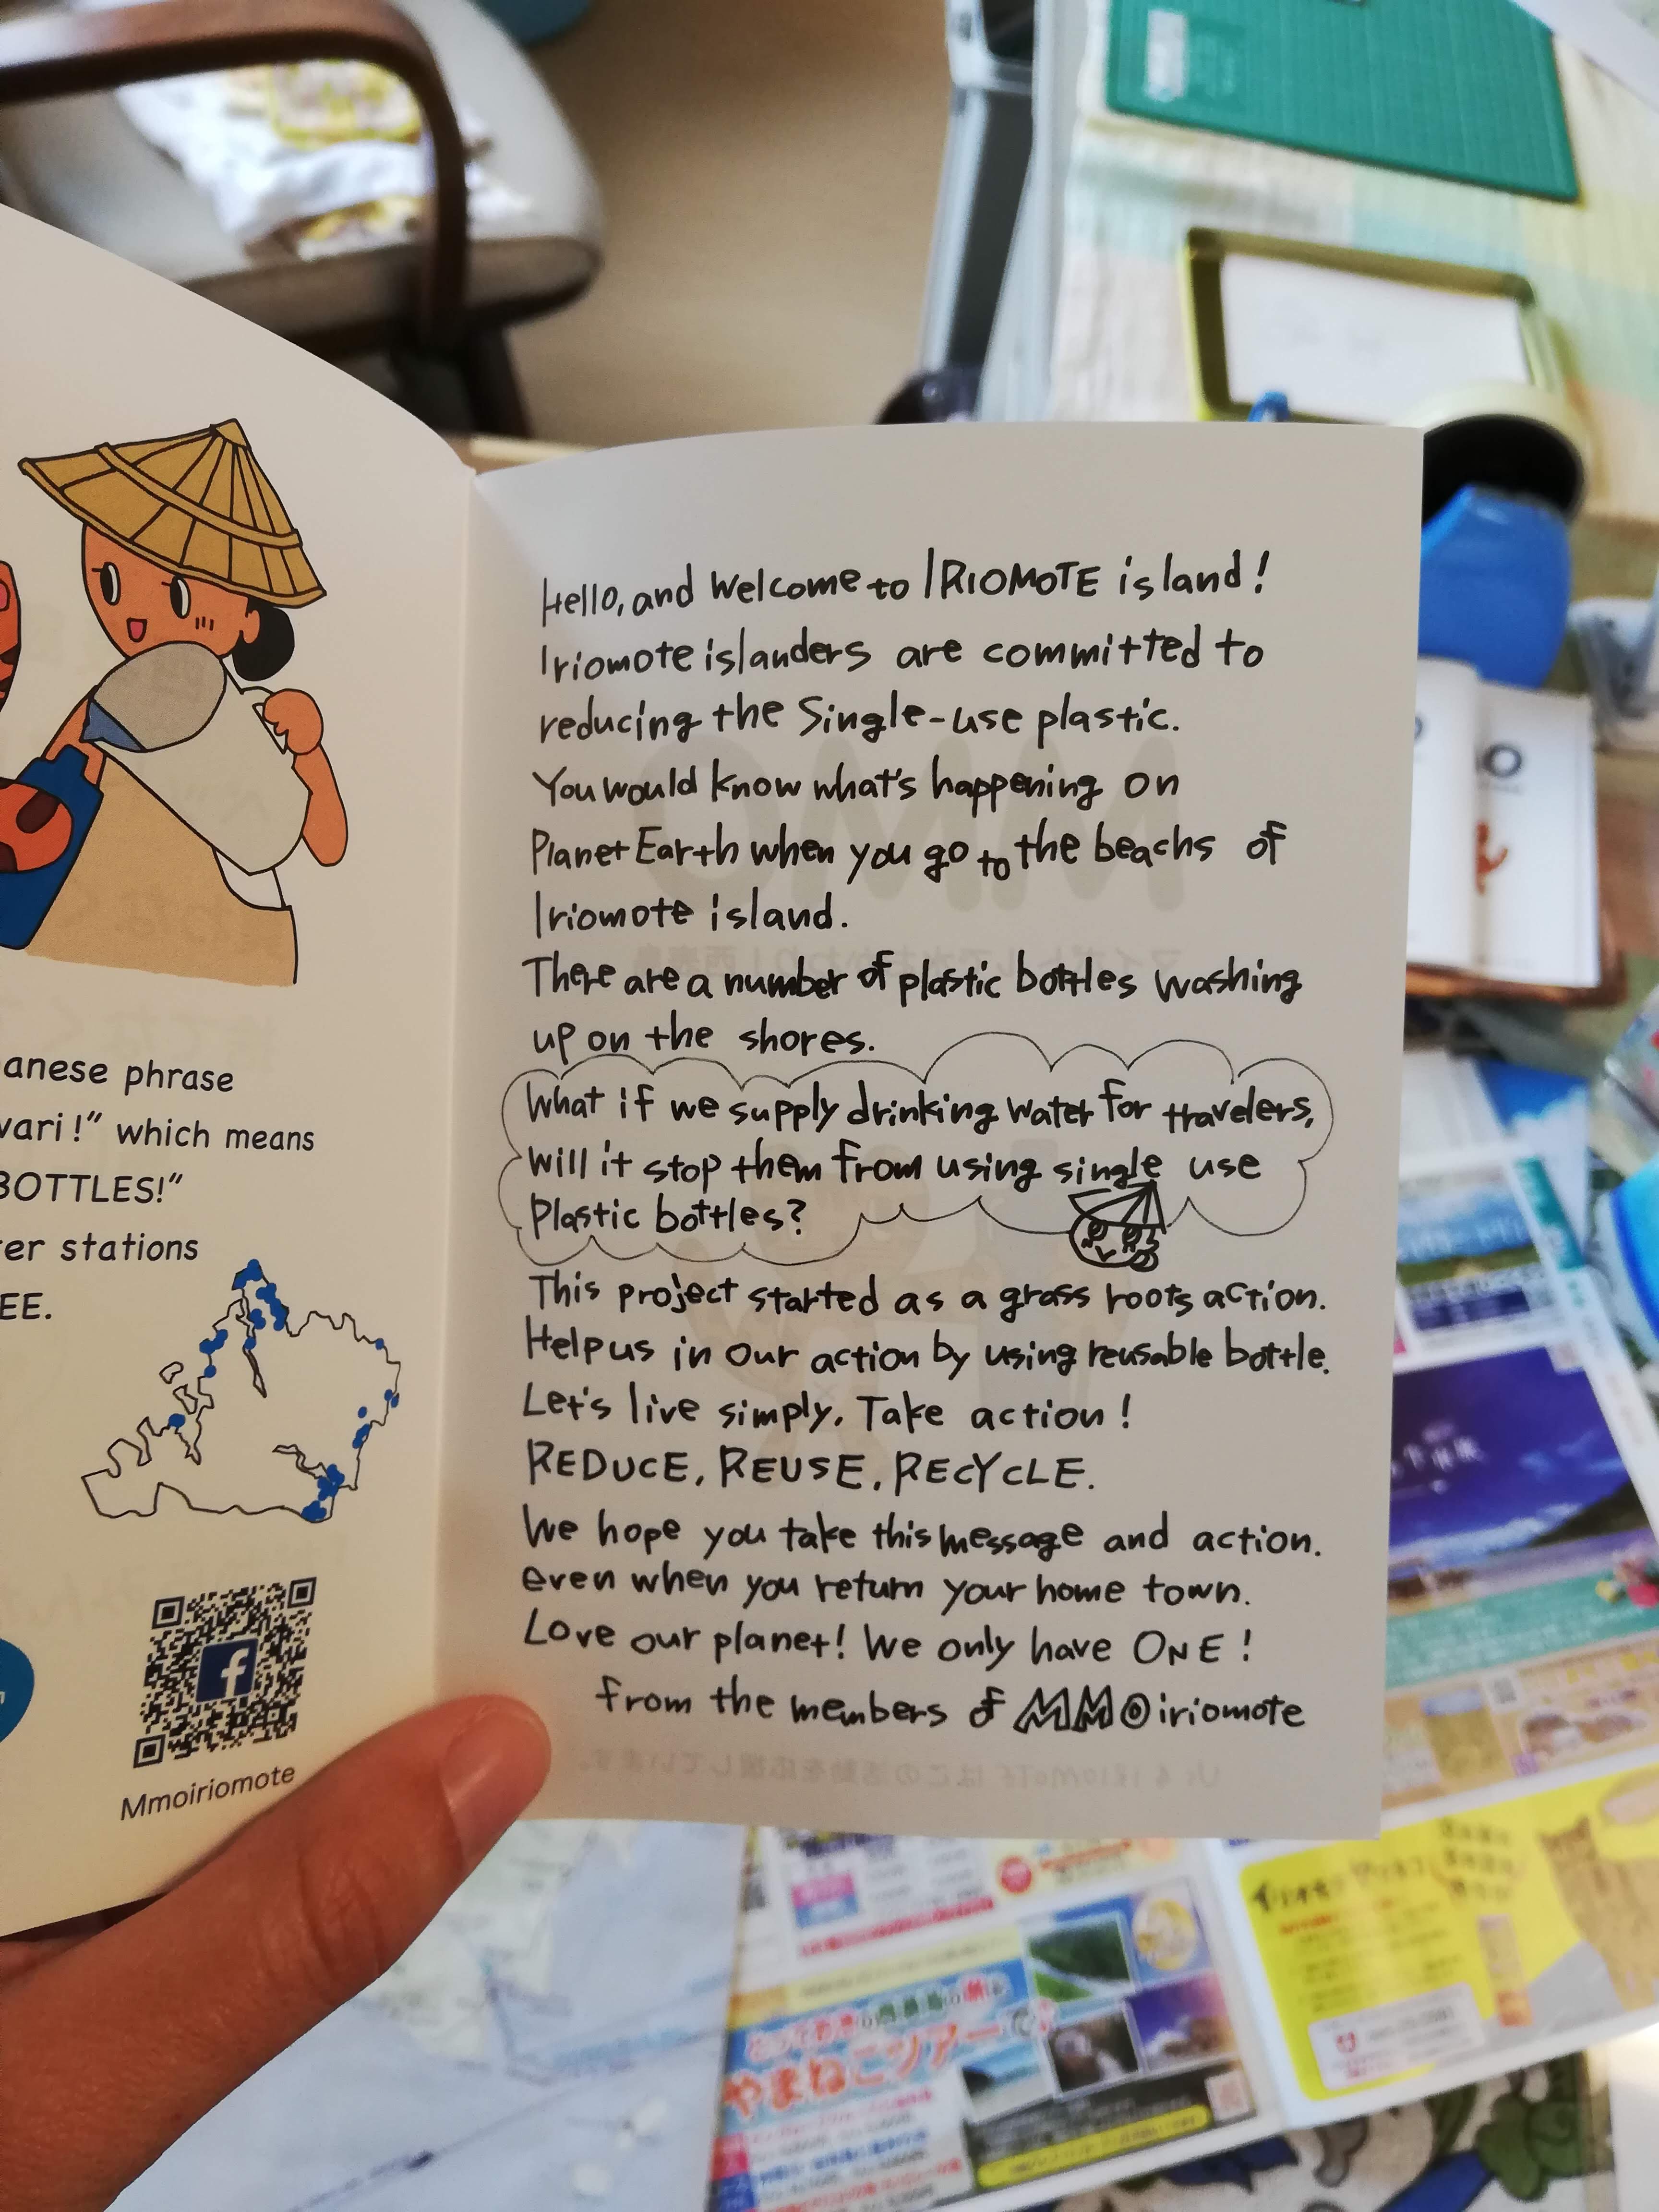 anese phrase
wari!" which means
BOTTLES!"
er stations
EE.
Mmoiriomote
Hello, and Welcome to IRIOMOTE island!
Iriomote islanders are committed to
reducing the Single-use plastic.
You would know what's happening on
Planet Earth when you go to the beachs of
Iriomote island.
There are a number of plastic bottles washing
up on the shores.
What if we supply drinking water for travelers,
will it stop them from using single use
Plastic bottles?
This project started as a grass roots action.
Help us in our action by using reusable bottle.
Let's live simply. Take action!
REDUCE, REUSE, RECYCLE.
We hope you take this message and action.
even when you return your home town.
Love our planet! We only have ONE!
from the members of MMOiriomote
やまねこツアー